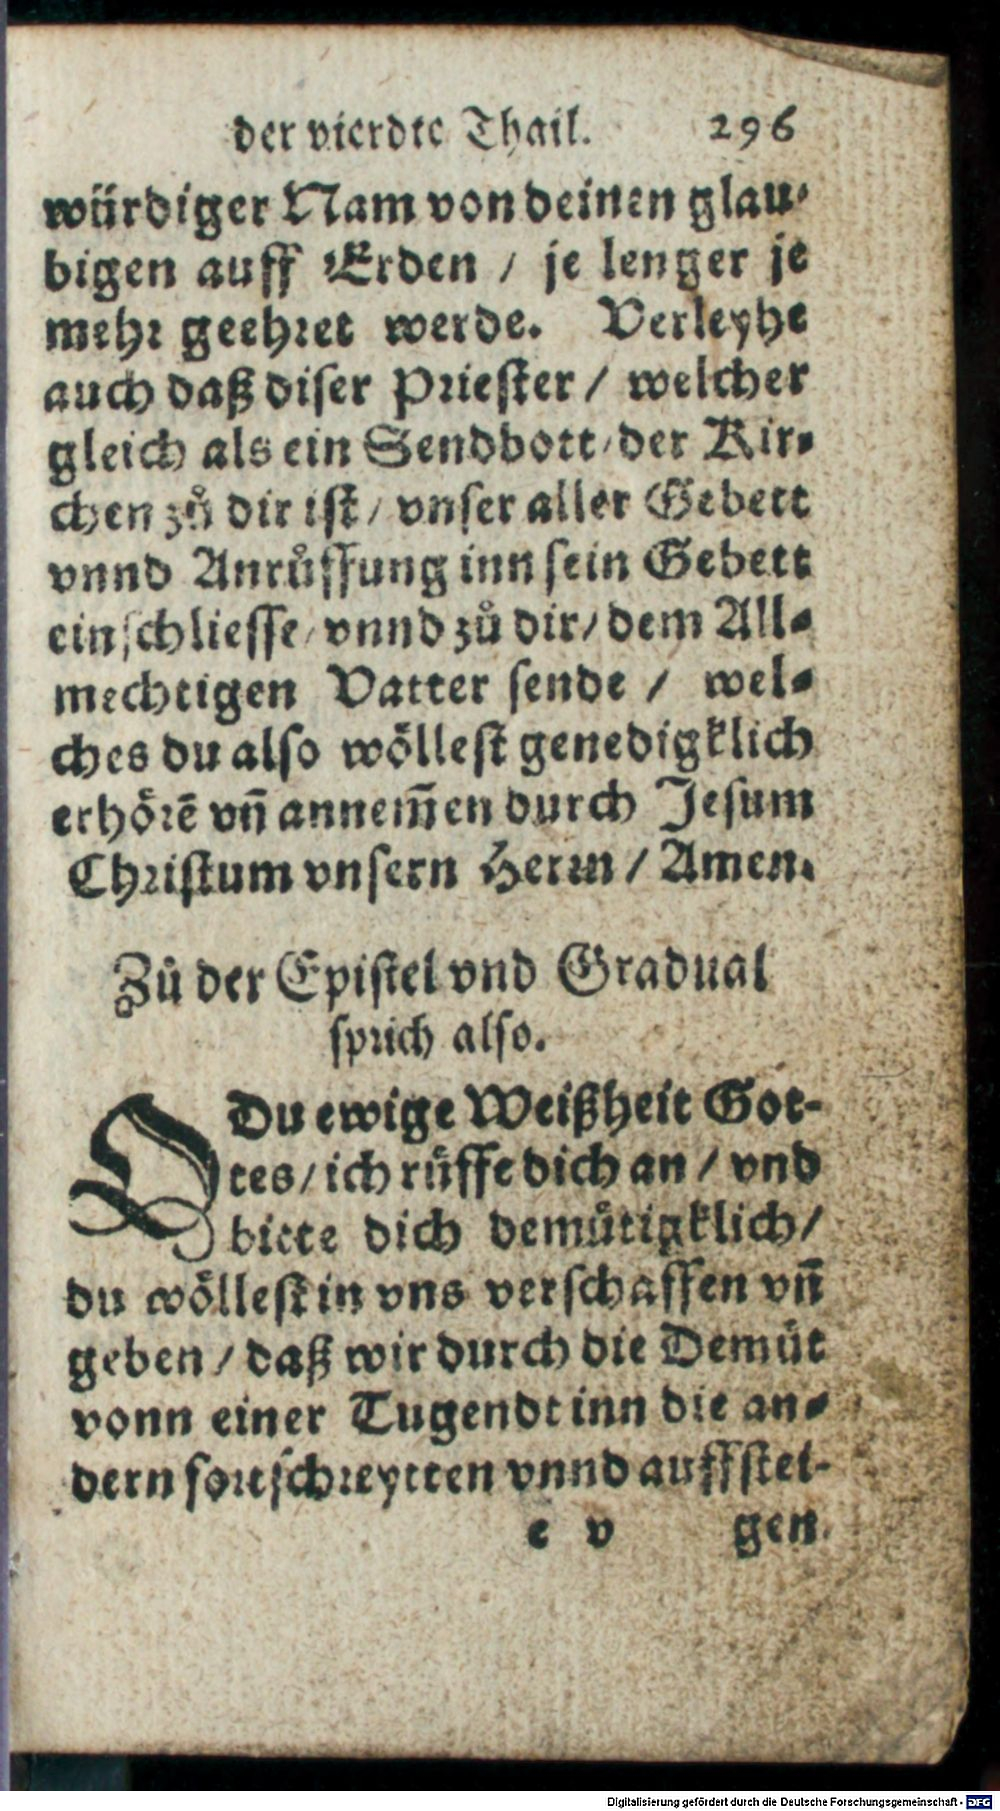 der vierdte Thail. 296
würdiger Nam von deinen glau-
bigen auff Erden / je lenger je
mehr geehret werde. Verleyhe
auch daß diser Priester / welcher
gleich als ein Sendbott / der Kir-
chen zů dir ist / vnser aller Gebett
vnnd Anrůffung inn sein Gebett
einschliesse / vnnd zů dir / dem All-
mechtigen Vatter sende / wel-
ches du also wöllest genedigklich
erhörē vñ annem̄en durch Jesum
Christum vnsern Herrn / Amen.
Zů der Epistel vnd Gradual
sprich also.
O Du ewige Weißheit Got-
tes / ich růffe dich an / vnd
bitte dich demůtigklich /
du wöllest in vns verschaffen vñ
geben / daß wir durch die Demůt
vonn einer Tugendt inn die an-
dern fortschreytten vnnd auffstei-
e v gen.
Digitalisierung gefördert durch die Deutsche Forschungsgemeinschaft - DFG